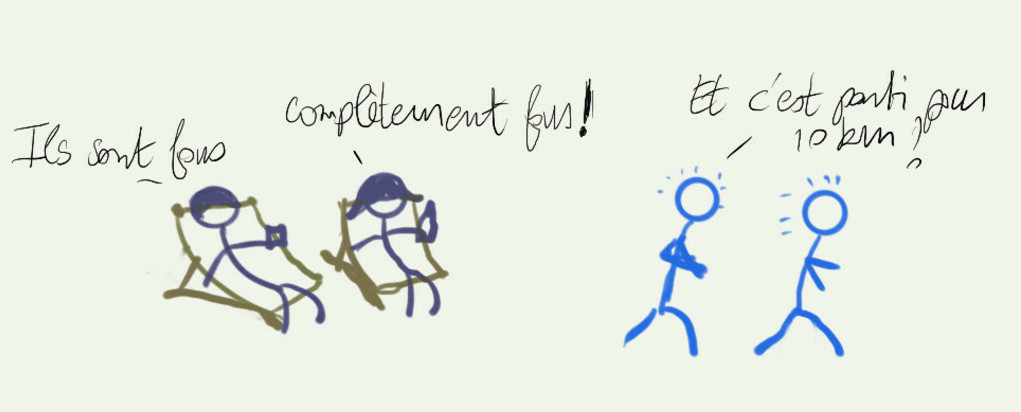 Ils sont fous
complètement fous!
Et c'est parti pour
10 km ?